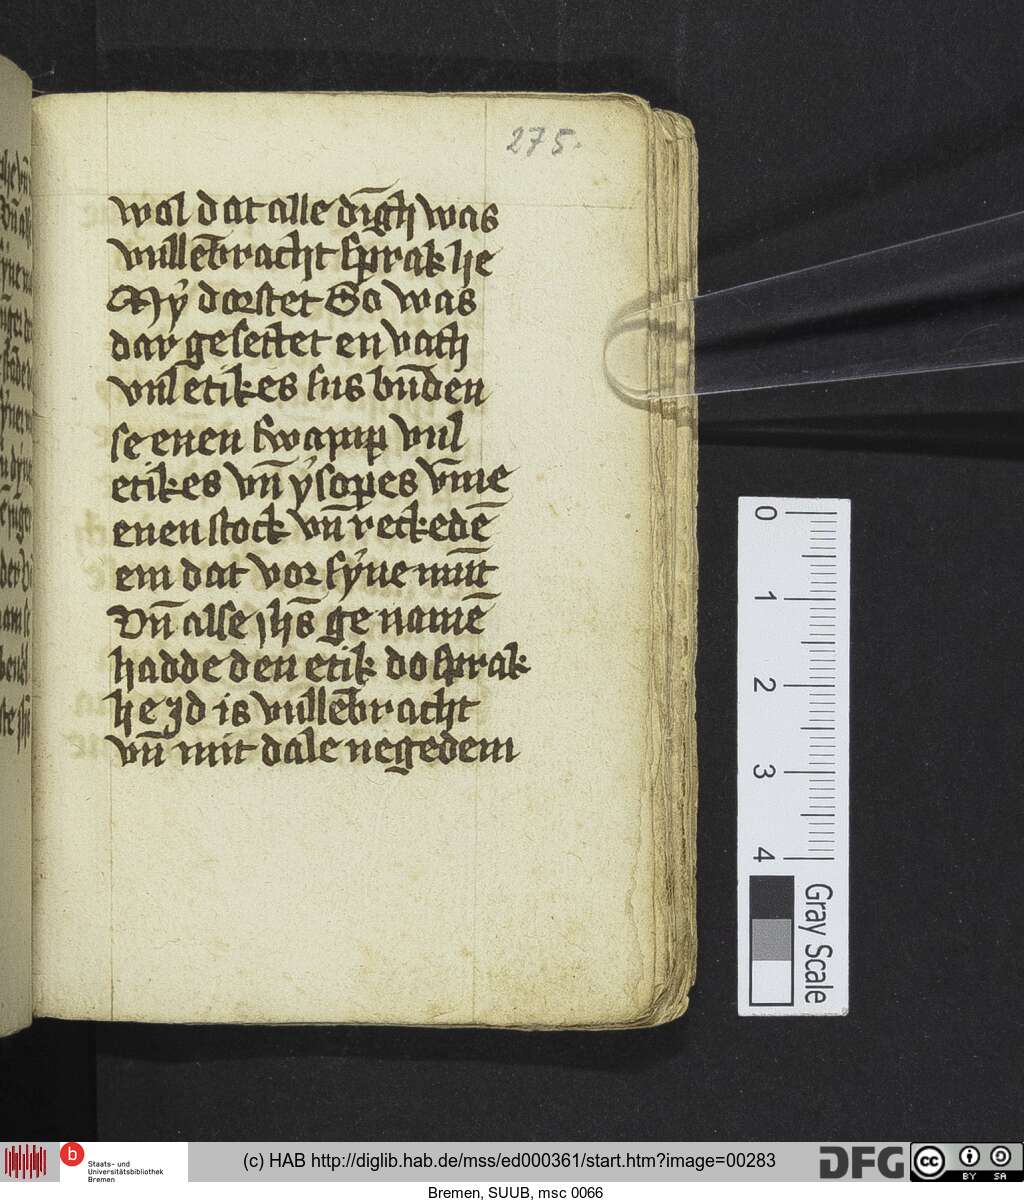 275.
wol dat alle di̅gh was
vulle̅bracht sprak he
My̍ dorstet So was
dar gesettet en vath
vul etikes sus bu̅den
se enen swamp vul
etikes vn̅ ẏsopes vm̅e
enen stock vn̅ reckede̅
em dat vor sẏne mu̅t
Vn̅ alse jhs̅ ge name̅
hadde den etik do sprak
he Jd is vulle̅bracht
vn̅ mit dale negedem
0
1
2
3
4
Gray Scale
b
Staats- und
Universitätsbibliothek
Bremen
(c) HAB http://diglib.hab.de/mss/ed000361/start.htm?image=00283
DFG
cc
BY SA
Bremen, SUUB, msc 0066